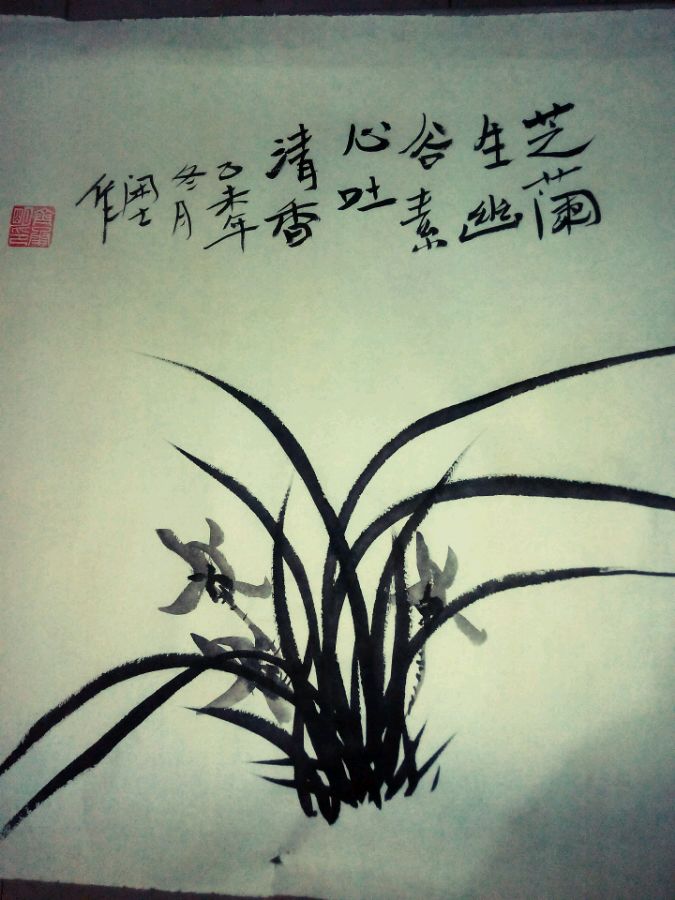 芝蘭
生幽
谷素
心吐
清香
乙未年
冬月